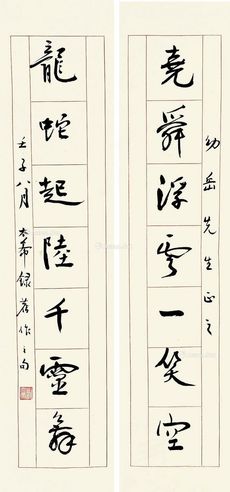 幼岳先生正之
堯舜浮雲一笑空
龍蛇起陸千靈舞
壬子八月 本希錄舊作之句